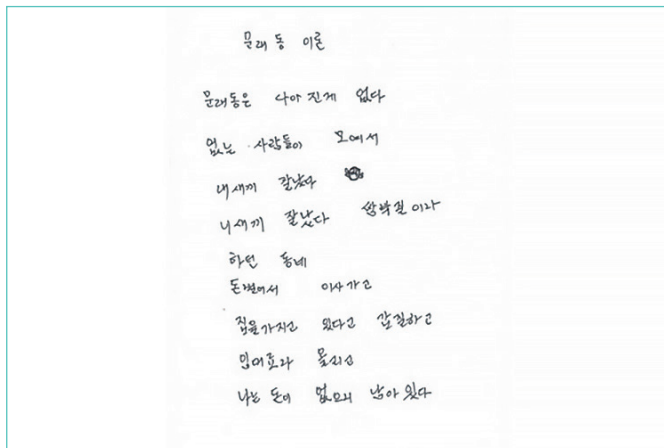 문래동 이론
문래동은 나아진게 없다
없는 사람들이 모여서
내새끼 잘났다
니새끼 잘났다 쌈박질이라
하던 동네
돈벌어서 이사가고
집을가지고 있다고 갑질하고
임대료라 올리고
나는 돈이 없으니 남아있다